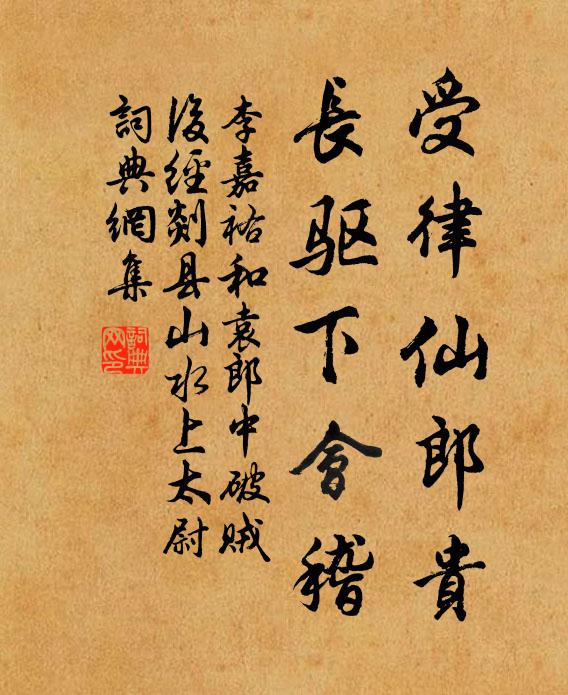 受律仙郎貴
長驱下會稽
李嘉祐和袁郎中破贼
後經剡县山水上太尉
詞典網集
詞典網印